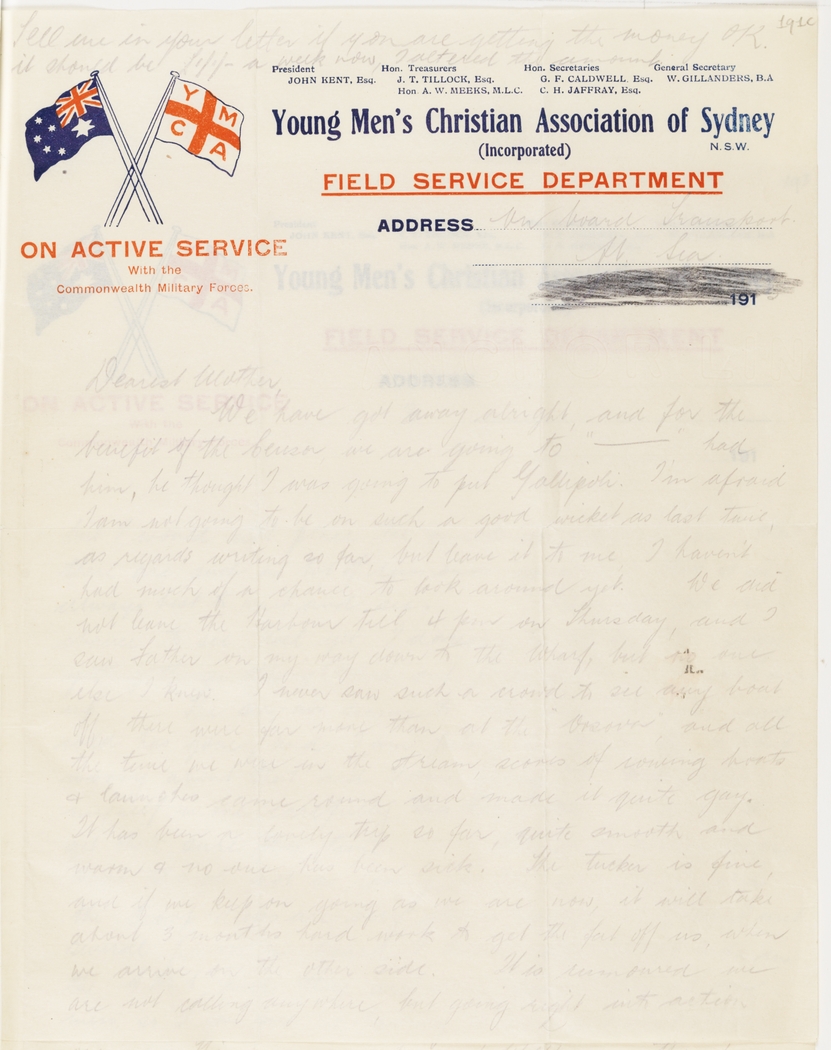 1916
Tell me in your letter if you are getting the money OK.
it should be a week now, I altered the amount
President
JOHN KENT, Esq.
Hon. Treasurers
J. T. TILLOCK, Esq.
Hon. A. W. MEEKS, M.L.C.
Hon. Secretaries
G. F. CALDWELL, Esq.
C. H. JAFFRAY, Esq.
General Secretary
W. GILLANDERS, B.A
Y M
C A
Young Men's Christian Association of Sydney
(Incorporated)
N.S.W.
FIELD SERVICE DEPARTMENT
ADDRESS On board Transport.
At Sea.
191
ON ACTIVE SERVICE
With the
Commonwealth Military Forces.
Dearest Mother,
We have got away alright, and for the
benefit of the Censor, we are going to "———" had
him, he thought I was going to put Gallipoli. I'm afraid
I am not going to be on such a good wicket as last time,
as regards writing so far, but leave it to me, I haven't
had much of a chance to look around yet. We did
not leave the Harbour till 4 pm on Thursday, and I
saw Father on my way down to the Wharf, but no one
else I knew. I never saw such a crowd to see any boat
off, there were far more than at the "Orsova", and all
the time we were in the stream, scores of rowing boats
& launches came round and made it quite gay.
It has been a lovely trip so far, quite smooth and
warm & no one has been sick. The tucker is fine,
and if we keep on going as we are now, it will take
about 3 months hard work to get the fat off us, when
we arrive on the other side. It is rumoured we
are not calling anywhere, but going right into action